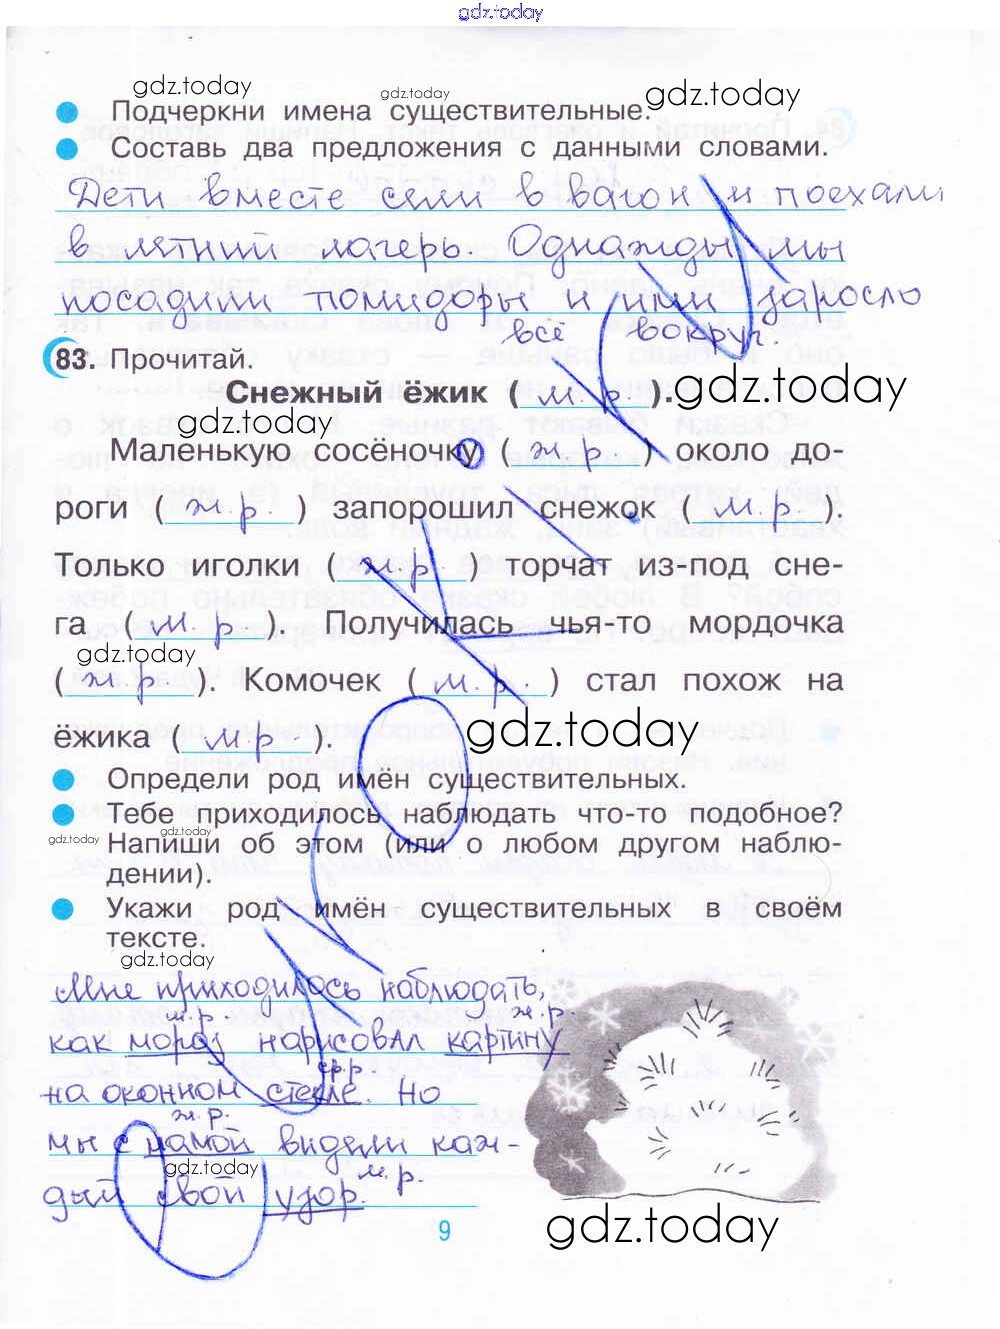 gdz.today
gdz.today gdz.today gdz.today
Подчеркни имена существительные.
Составь два предложения с данными словами.
Дети вместе сели в вагон и поехали
в летний лагерь. Однажды мы
посадили помидоры и ими заросло
всё вокруг.
83. Прочитай.
gdz.today
Снежный ёжик ( м. р. ).
gdz.today
Маленькую сосёночку ( ж. р. ) около до-
роги ( ж. р. ) запорошил снежок ( м. р. ).
Только иголки ( ж. р. ) торчат из-под сне-
га ( м. р. ). Получилась чья-то мордочка
gdz.today
( ж. р. ). Комочек ( м. р. ) стал похож на
gdz.today
ёжика ( м. р. ).
Определи род имён существительных.
Тебе приходилось наблюдать что-то подобное?
gdz.today gdz.today
Напиши об этом (или о любом другом наблю-
дении).
Укажи род имён существительных в своём
тексте.
gdz.today
Мне приходилось наблюдать,
м. р. ж. р.
как мороз нарисовал картину
ср. р.
на оконном стекле. Но
ж. р.
мы с мамой видели каж-
gdz.today м. р.
дый свой узор.
9
gdz.today